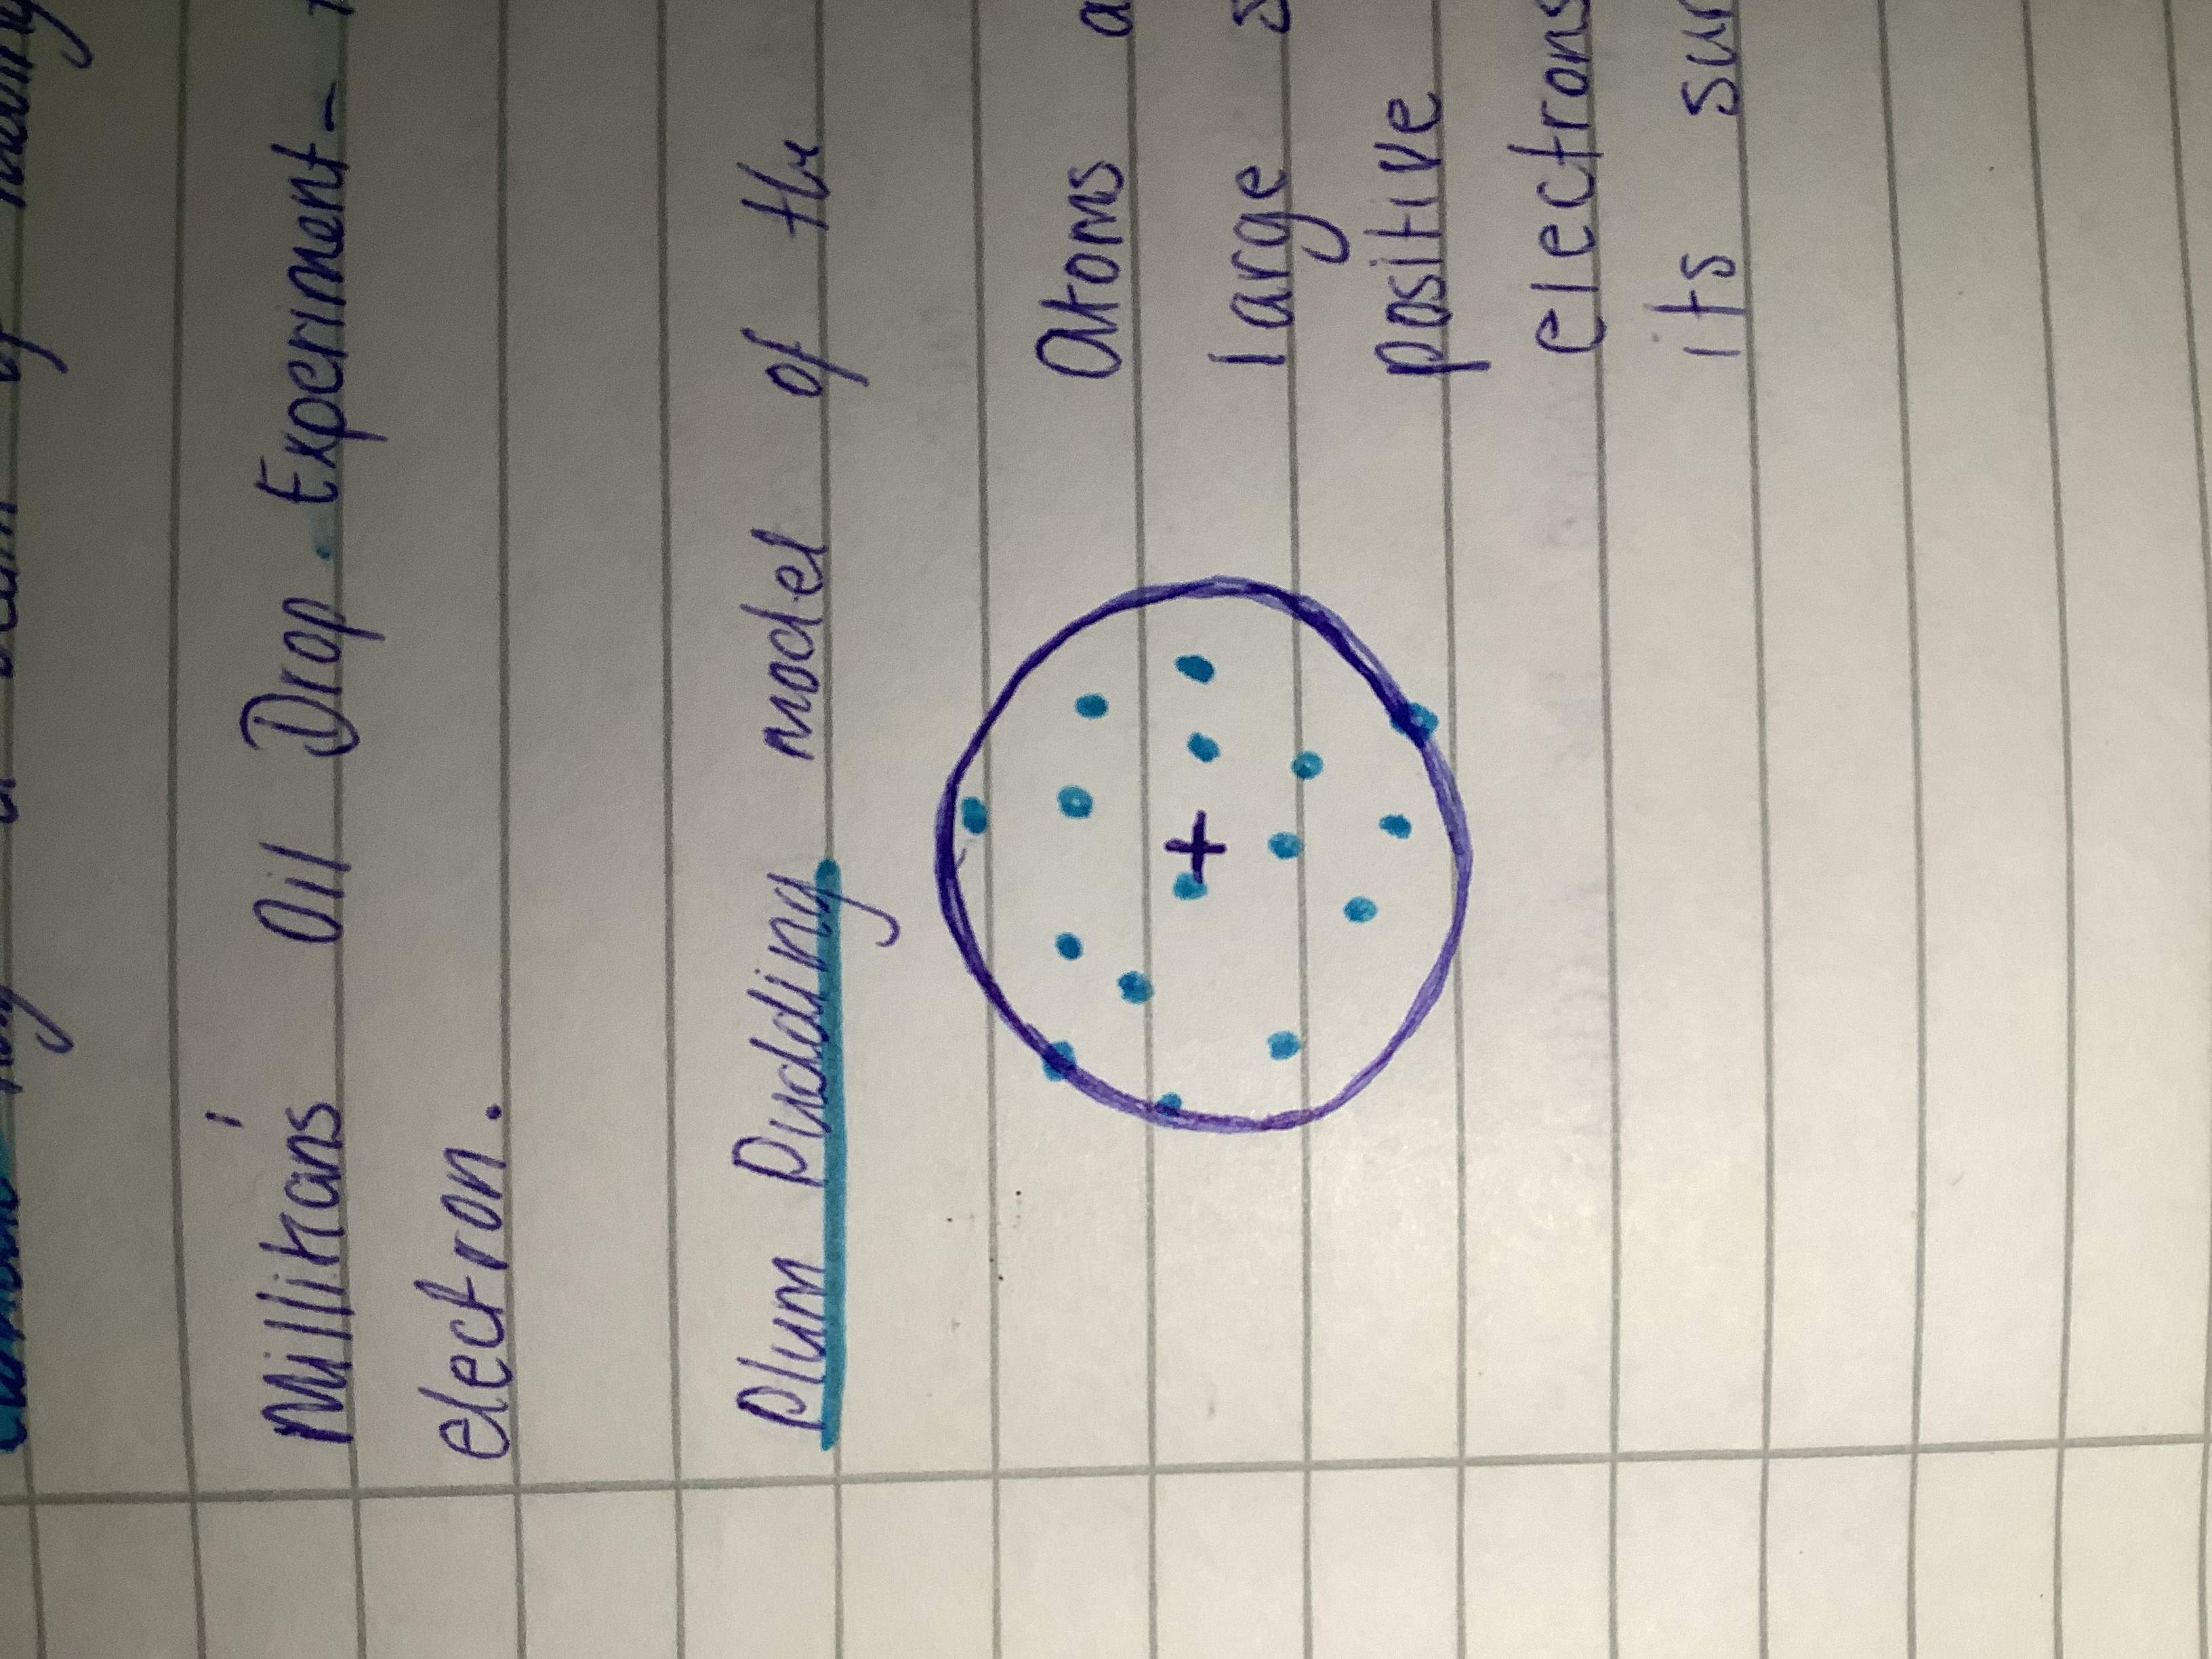 Millikans' Oil Drop Experiment -
electron.
Plum Pudding model of the
+
Atoms a
large s
positive
electrons
its sur